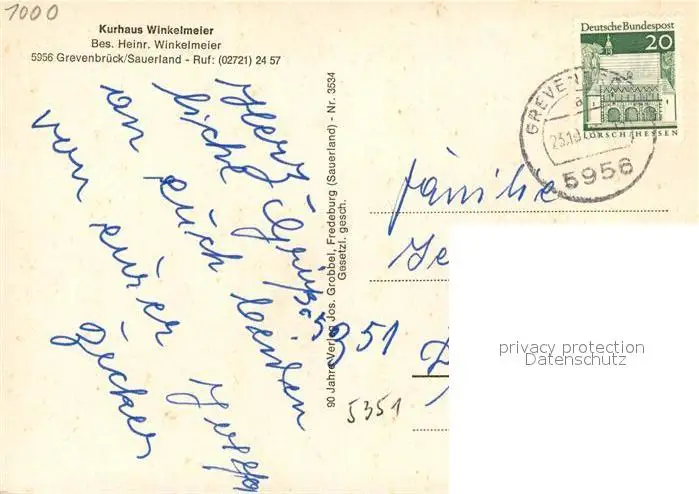 1000
Kurhaus Winkelmeier
Bes. Heinr. Winkelmeier
5956 Grevenbrück/Sauerland - Ruf: (02721) 24 57
Deutsche Bundespost
20
LORSCH/HESSEN
GREVENBRÜCK
5956
Herz
liche Grüße
an euch beiden
von eurer
90 Jahre Verlag Jos. Grobbel, Fredeburg (Sauerland) - Nr. 3534
Gesetzl. gesch.
Familie
5351
5351
privacy protection
Datenschutz